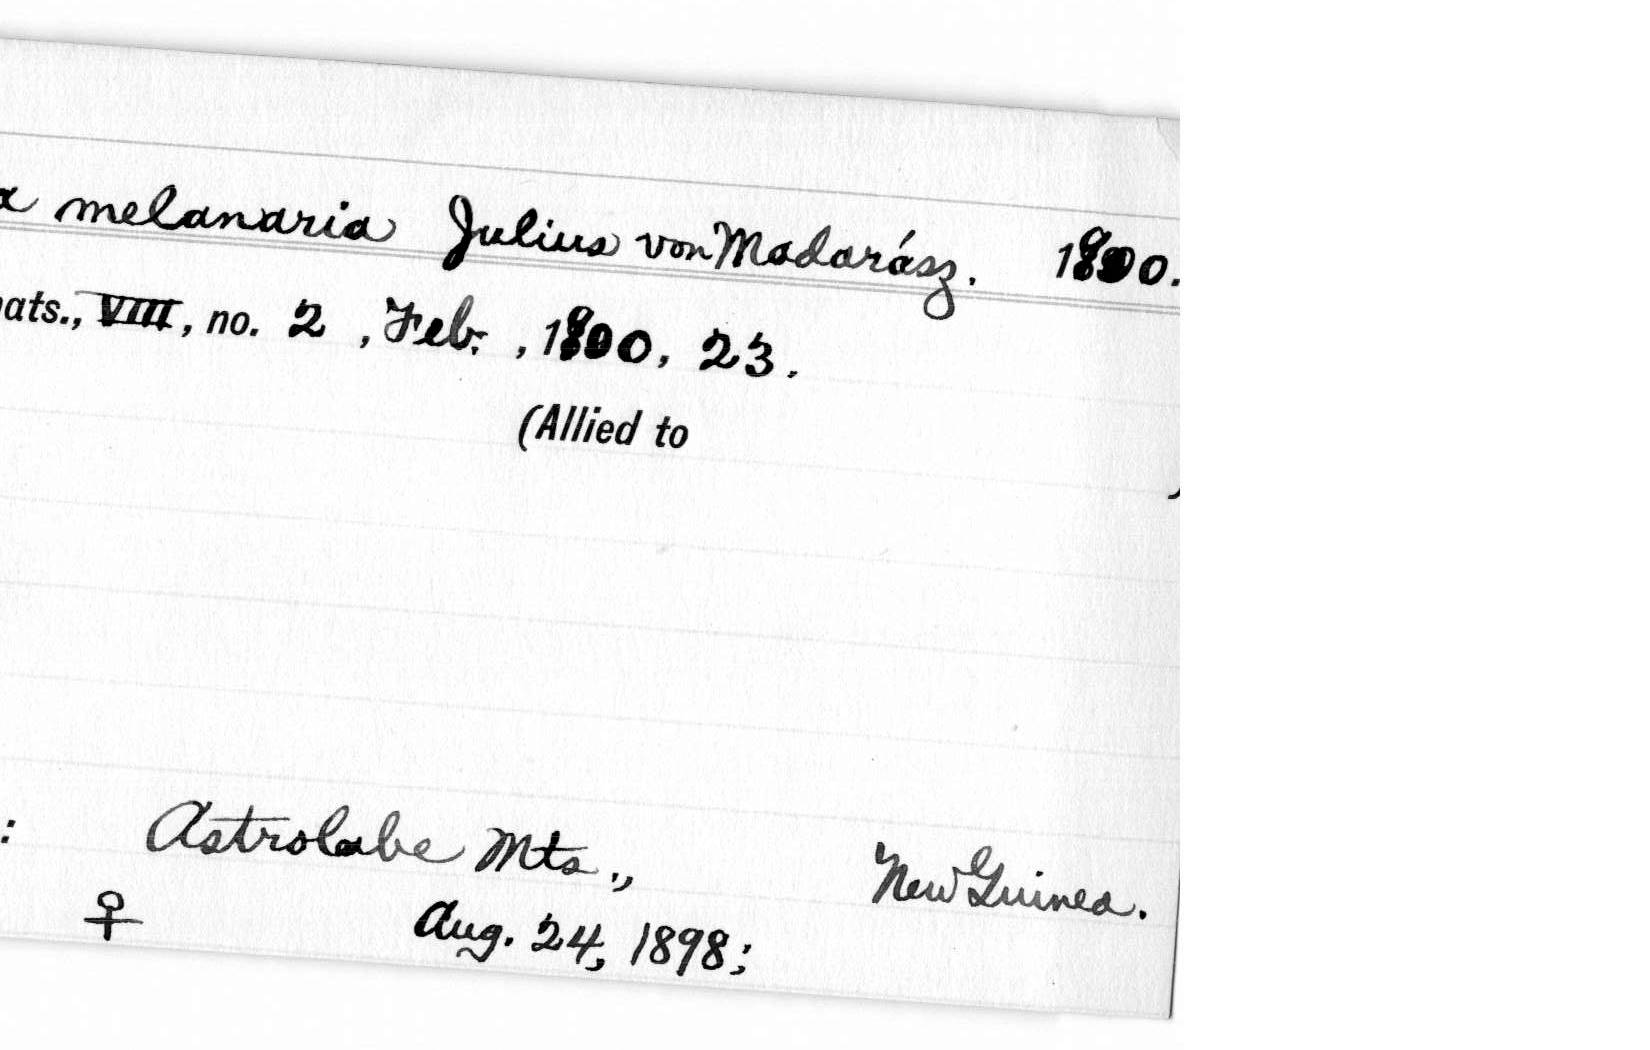 a melanaria Julius von Madarász. 1900.
ats., VIII, no. 2, Feb., 1900, 23.
(Allied to
)
: Astrolabe Mts., New Guinea.
♀ Aug. 24, 1898;